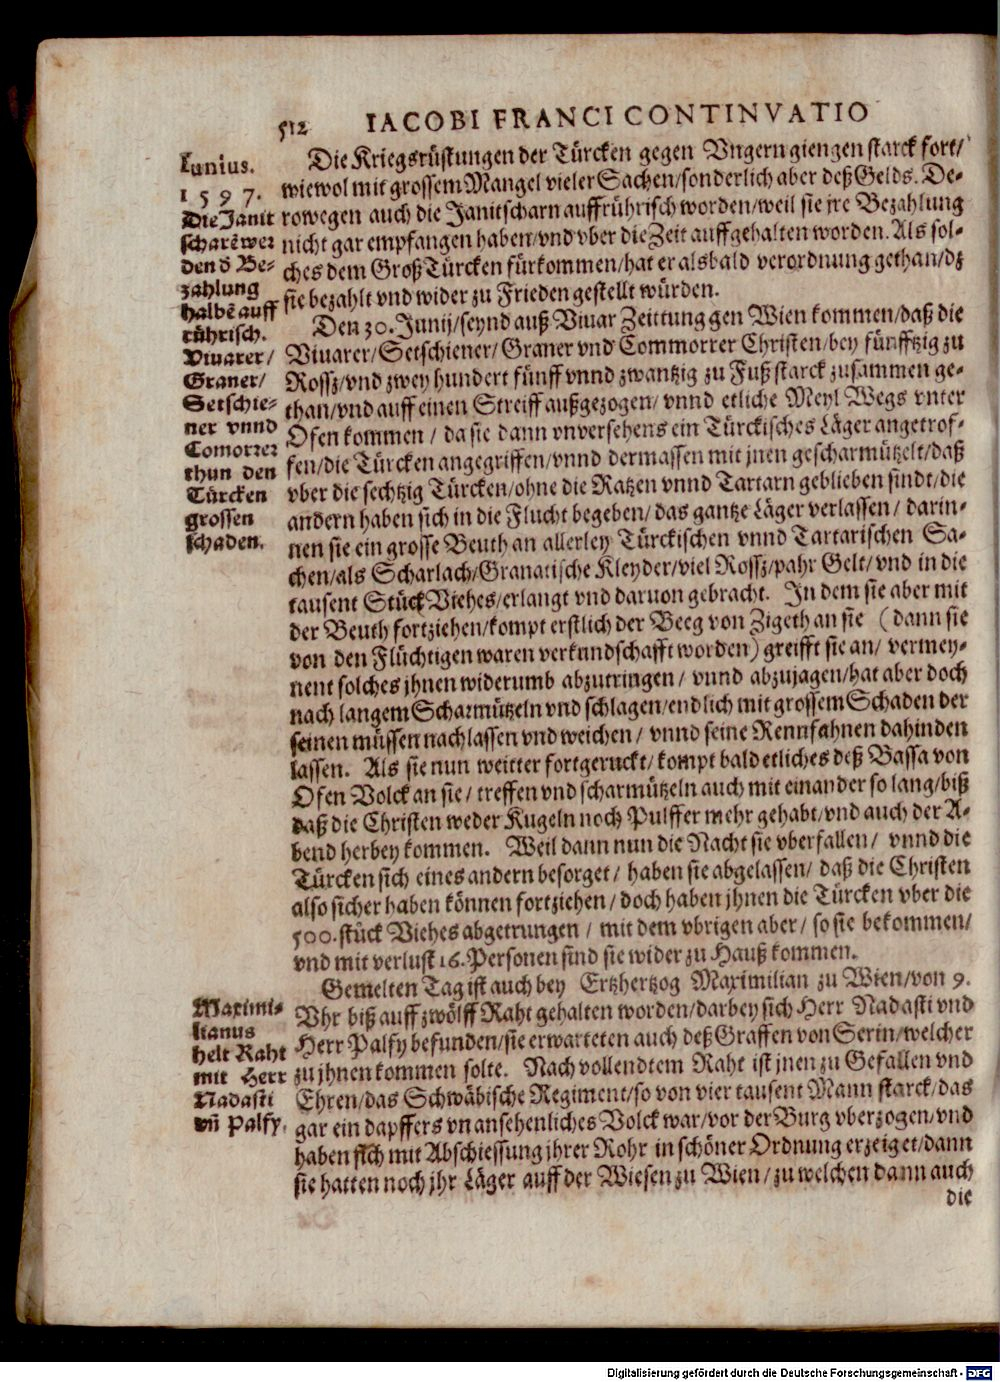 512 IACOBI FRANCI CONTINVATIO
Iunius.
1597.
Die Janit
scharẽ wer
den d Be-
zahlung
halbẽ auff
rührisch.
Viuarer/
Graner/
Setschie-
ner vnnd
Comorrer
thun den
Türcken
grossen
schaden.
Die Kriegsrüstungen der Türcken gegen Vngern giengen starck fort/
wiewol mit grossem Mangel vieler Sachen/sonderlich aber deß Gelds. De-
rowegen auch die Janitscharn auffrührisch worden/weil sie jre Bezahlung
nicht gar empfangen haben/vnd vber die Zeit auffgehalten worden. Als sol-
ches dem Groß Türcken fürkommen/hat er alsbald verordnung gethan/dz
sie bezahlt vnd wider zu Frieden gestellt würden.
Den 30. Junij/seynd auß Viuar Zeittung gen Wien kommen/daß die
Viuarer/Setschiener/Graner vnd Commorrer Christen/bey fünfftzig zu
Rossz/vnd zwey hundert fünff vnnd zwantzig zu Fuß starck zusammen ge-
than/vnd auff einen Streiff außgezogen/ vnnd etliche Meyl Wegs vnter
Ofen kommen / da sie dann vnversehens ein Türckisches Läger angetrof-
fen/die Türcken angegriffen/vnnd dermassen mit jnen gescharmützelt/daß
vber die sechtzig Türcken/ohne die Ratzen vnnd Tartarn geblieben sindt/die
andern haben sich in die Flucht begeben/das gantze Läger verlassen/ darin-
nen sie ein grosse Beuth an allerley Türckischen vnnd Tartarischen Sa-
chen/als Scharlach/Granatische Kleyder/viel Rossz/pahr Gelt/vnd in die
tausent Stück Viehes/erlangt vnd daruon gebracht. In dem sie aber mit
der Beuth fortziehen/kompt erstlich der Beeg von Zigeth an sie (dann sie
von den Flüchtigen waren verkundschafft worden) greifft sie an/ vermey-
nent solches jhnen widerumb abzutringen/ vnnd abzujagen/hat aber doch
nach langem Scharmützeln vnd schlagen/endlich mit grossem Schaden der
seinen müssen nachlassen vnd weichen/ vnnd seine Rennfahnen dahinden
lassen. Als sie nun weitter fortgeruckt/kompt bald etliches deß Bassa von
Ofen Volck an sie/ treffen vnd scharmützeln auch mit einander so lang/biß
daß die Christen weder Kugeln noch Pulffer mehr gehabt/vnd auch der A-
bend herbey kommen. Weil dann nun die Nacht sie vberfallen/ vnnd die
Türcken sich eines andern besorget/ haben sie abgelassen/ daß die Christen
also sicher haben können fortziehen/ doch haben jhnen die Türcken vber die
500. stück Viehes abgetrungen / mit dem vbrigen aber/ so sie bekommen/
vnd mit verlust 16. Personen sind sie wider zu Hauß kommen.
Maximi-
lianus
helt Raht
mit Herr
Nadasti
vñ Palfy.
Gemelten Tag ist auch bey Ertzhertzog Maximilian zu Wien/von 9.
Vhr biß auff zwölff Raht gehalten worden/darbey sich Herr Nadasti vnd
Herr Palfy befunden/sie erwarteten auch deß Graffen von Serin/welcher
zu jhnen kommen solte. Nach vollendtem Raht ist jnen zu Gefallen vnd
Ehren/das Schwäbische Regiment/so von vier tausent Mann starck/das
gar ein dapffers vn ansehenliches Volck war/vor der Burg vberzogen/vnd
haben sich mit Abschiessung jhrer Rohr in schöner Ordnung erzeiget/dann
sie hatten noch jhr Läger auff der Wiesen zu Wien/zu welchen dann auch
die
Digitalisierung gefördert durch die Deutsche Forschungsgemeinschaft - DFG